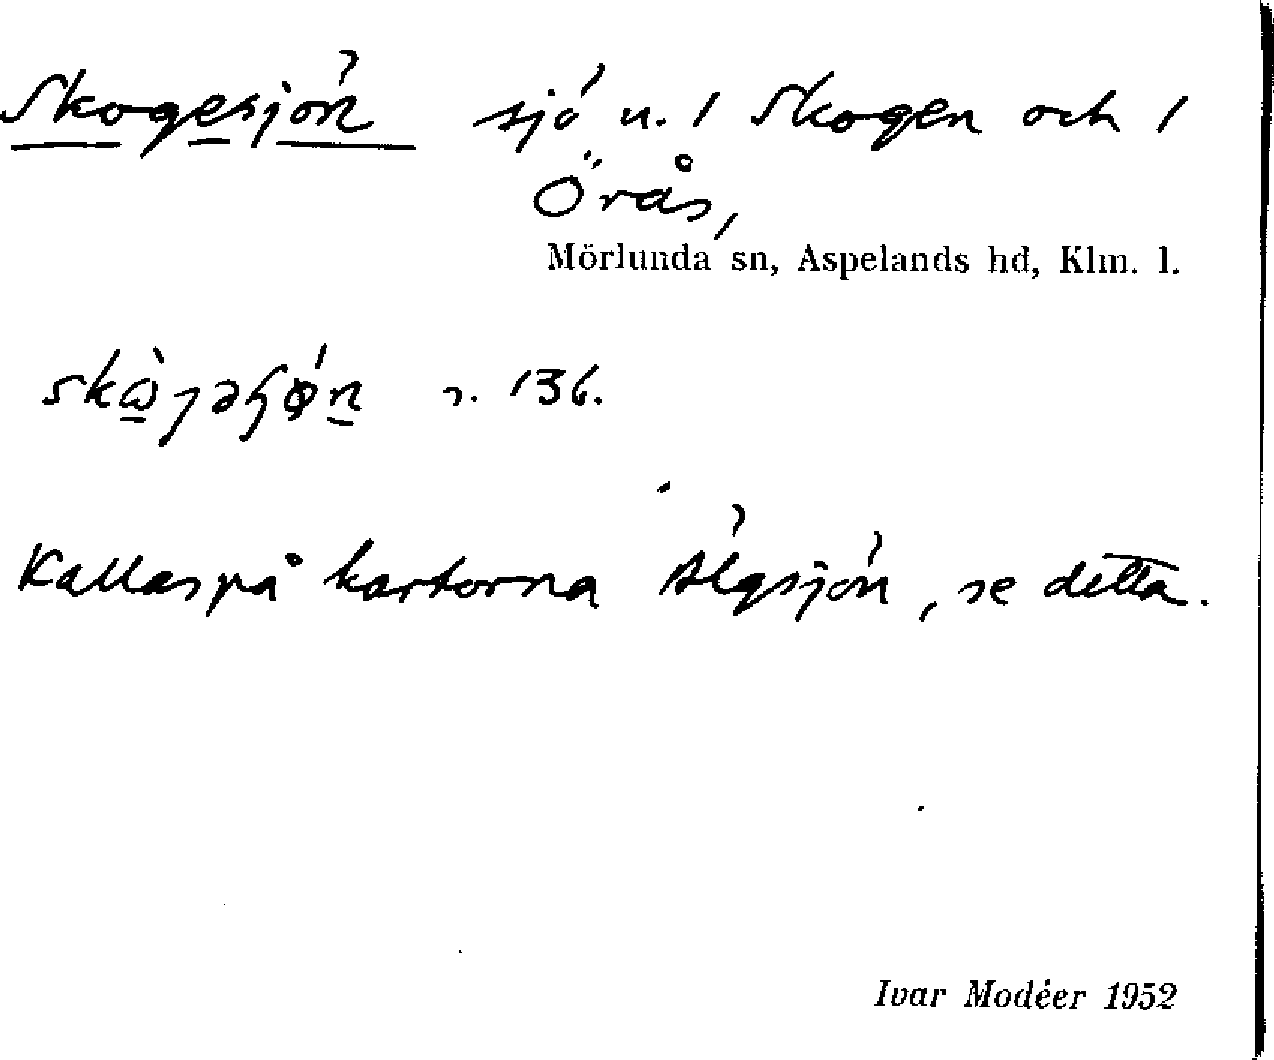 Skogesjön sjö u. / Skogen och /
Örås,
Mörlunda sn, Aspelands hd, Klm. l.
s. 136.
Kallas på kartorna Älgsjön, se detta.
Ivar Modéer 1952